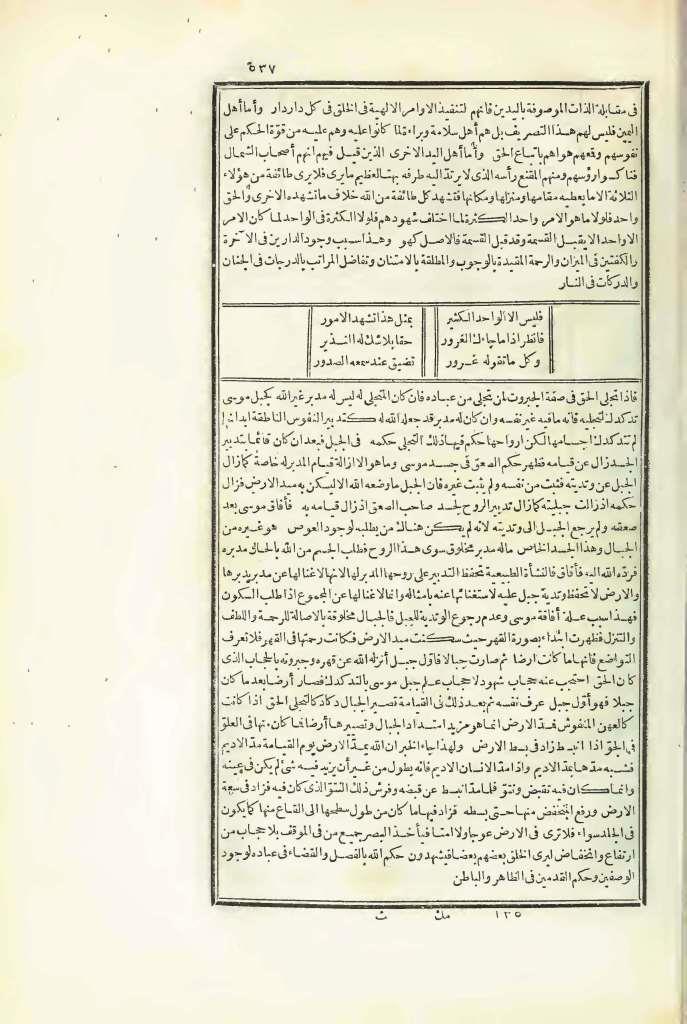 ٥٣٧
فى مقابلة الذات الموصوفة باليدين فانهم لتنفيذ الاوامر الالهية فى الخلق فى كل دار دار وأما أهل
اليمين فليس لهم هذا التصريف بل هم أهل سلامة وبراءة لما كانوا عليه وهم عليه من قوة الحكم على
نفوسهم وقعهم هواهم باتباع الحق وأما أهل اليد الاخرى الذين قيل فيهم انهم أصحاب الشمال
فناكسوا رؤسهم ومنهم المقنع رأسه الذى لا يرتد اليه طرفه بهتا لعظيم ما يرى فلا يرى طائفة من هؤلاء
الثلاثة الا ما يعطيه مقامها ومنزلها ومكانها فتشهد كل طائفة من الله خلاف ما تشهده الاخرى والحق
واحد فلولا ما هو الامر واحد الكثرة لما اختلف شهودهم فلولا الكثرة فى الواحد لما كان الامر
الا واحدا لا يقبل القسمة وقد قبل القسمة فالاصل كهو وهذا سبب وجود الدارين فى الآخرة
والكفتين فى الميزان والرحمة المقيدة بالوجوب والمطلقة بالامتنان وتفاضل المراتب بالدرجات فى الجنان
والدركات فى النار
فليس الا الواحد الكثير بمثل هذا تشهد الامور
فانظر اذا ما جاءك الغرور حقا بلا شك له النذير
وكل ما تقوله غرور تضيق عند سمعه الصدور
فاذا تجلى الحق فى صفة الجبروت لمن تجلى من عباده فان كان المتجلى له ليس له مدبر غير الله كجبل موسى
تدكدك لتجليه فانه ما فيه غير نفسه وان كان له مدبر قد جعله الله له كتدبير النفوس الناطقة أبدانها
لم تتدكدك أجسامها لكن أرواحها حكم فيها ذلك التجلى حكمه فى الجبل فبعد ان كان قائما بتدبير
الجسد زال عن قيامه فظهر حكم الصعق فى جسد موسى وما هو الا ازالة قيام المدبر له خاصة كما زال
الجبل عن وتديته فثبت من نفسه ولم يثبت غيره فان الجبل ما وضعه الله الا ليسكن به ميد الارض فزال
حكمه اذ زالت جبليته كما زال تدبير الروح لجسد صاحب الصعق اذ زال قيامه به فأفاق موسى بعد
صعقه ولم يرجع الجبل الى وتديته لانه لم يكن هنالك من يطلبه لوجود العوض هو غيره من
الجبال وهذا الجسد الخاص ما له مدبر مخلوق سوى هذا الروح فطلب الجسم من الله بالحال مدبره
فرده الله اليه فأفاق فالنشأة الطبيعية تحفظ التدبير على روحها المدبر لها لانها لا غنا لها عن مدبر يدبرها
والارض لا تحفظ وتدية جبل عليه لاستغنائها عنه بامثاله وانما لا غنا لها عن المجموع اذا طلب السكون
فهذا سبب علة أفاقة موسى وعدم رجوع الوتدية للجبل فالجبال مخلوقة بالاصالة للرحمة واللطف
والتنزل فظهرت ابتداء بصورة القهر حيث سكنت ميد الارض فكانت رحمتها فى القهر فلا تعرف
التواضع فانها ما كانت أرضا ثم صارت جبالا فأول جبل أنزله الله عن قهره وجبروته بالحجاب الذى
كان الحق احتجب عنه حجاب شهود لا حجاب علم جبل موسى بالتدكدك فصار أرضا بعد ما كان
جبلا فهو أول جبل عرف نفسه ثم بعد ذلك فى القيامة تصير الجبال دكا دكا لتجلى الحق اذا كانت
كالعهن المنفوش فمد الارض انما هو مزيد امتداد الجبال وتصييرها أرضا فما كان منها فى العلو
فى الجو اذا انبسط زاد فى بسط الارض ولهذا جاء الخبر ان الله يمد الارض يوم القيامة مد الاديم
فشبه مدها بمد الاديم واذا مد الانسان الاديم فانه يطول من غير أن يزيد فيه شئ لم يكن فى عينه
وانما كان فيه تقبض ونتو فلما مد انبسط عن قبضه وفرش ذلك النتو الذى كان فيه فزاد فى سعة
الارض ورفع المنخفض منها حتى بسطه فزاد فيها ما كان من طول سطحها الى القاع منها كما يكون
فى الجلد سواء فلا ترى فى الارض عوجا ولا امتا فيأخذ البصر جميع من فى الموقف بلا حجاب من
ارتفاع وانخفاض ليرى الخلق بعضهم بعضا فيشهدون حكم الله بالفصل والقضاء فى عباده لوجود
الوصفين وحكم القدمين فى الظاهر والباطن
١٣٥ مك ث